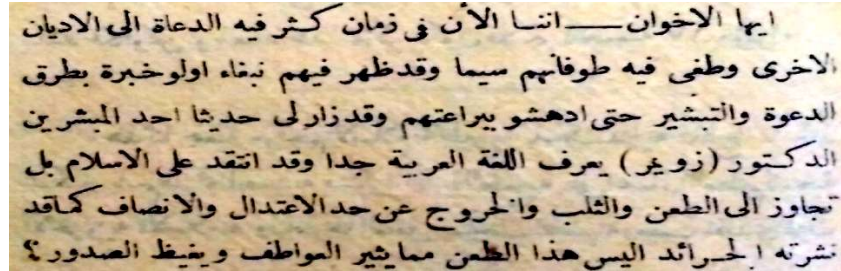 ايها الاخوان — اننا الأن فى زمان كثر فيه الدعاة الى الاديان
الاخرى وطغى فيه طوفانهم سيما وقد ظهر فيهم نبغاء اولو خبرة بطرق
الدعوة والتبشير حتى ادهشو ببراعتهم وقد زار لى حديثا احد المبشرين
الدكتور (زويمر) يعرف اللغة العربية جدا وقد انتقد على الاسلام بل
تجاوز الى الطعن والثلب والخروج عن حد الاعتدال والانصاف كما قد
نشرته الجرائد اليس هذا الطعن مما يثير العواطف ويغيظ الصدور؟